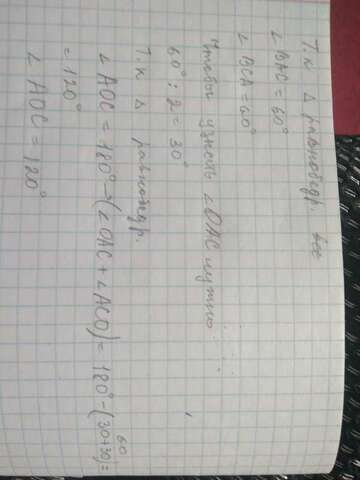 Т.к △ равнобедр. все
∠ BAC = 60°
∠ BCA = 60°
Чтобы узнать ∠OAC нужно
60° : 2 = 30°
Т.к △ равнобедр.
∠ AOC = 180° - (∠OAC + ∠ACO) = 180° - (30+30) =
60
= 120°
∠ AOC = 120°